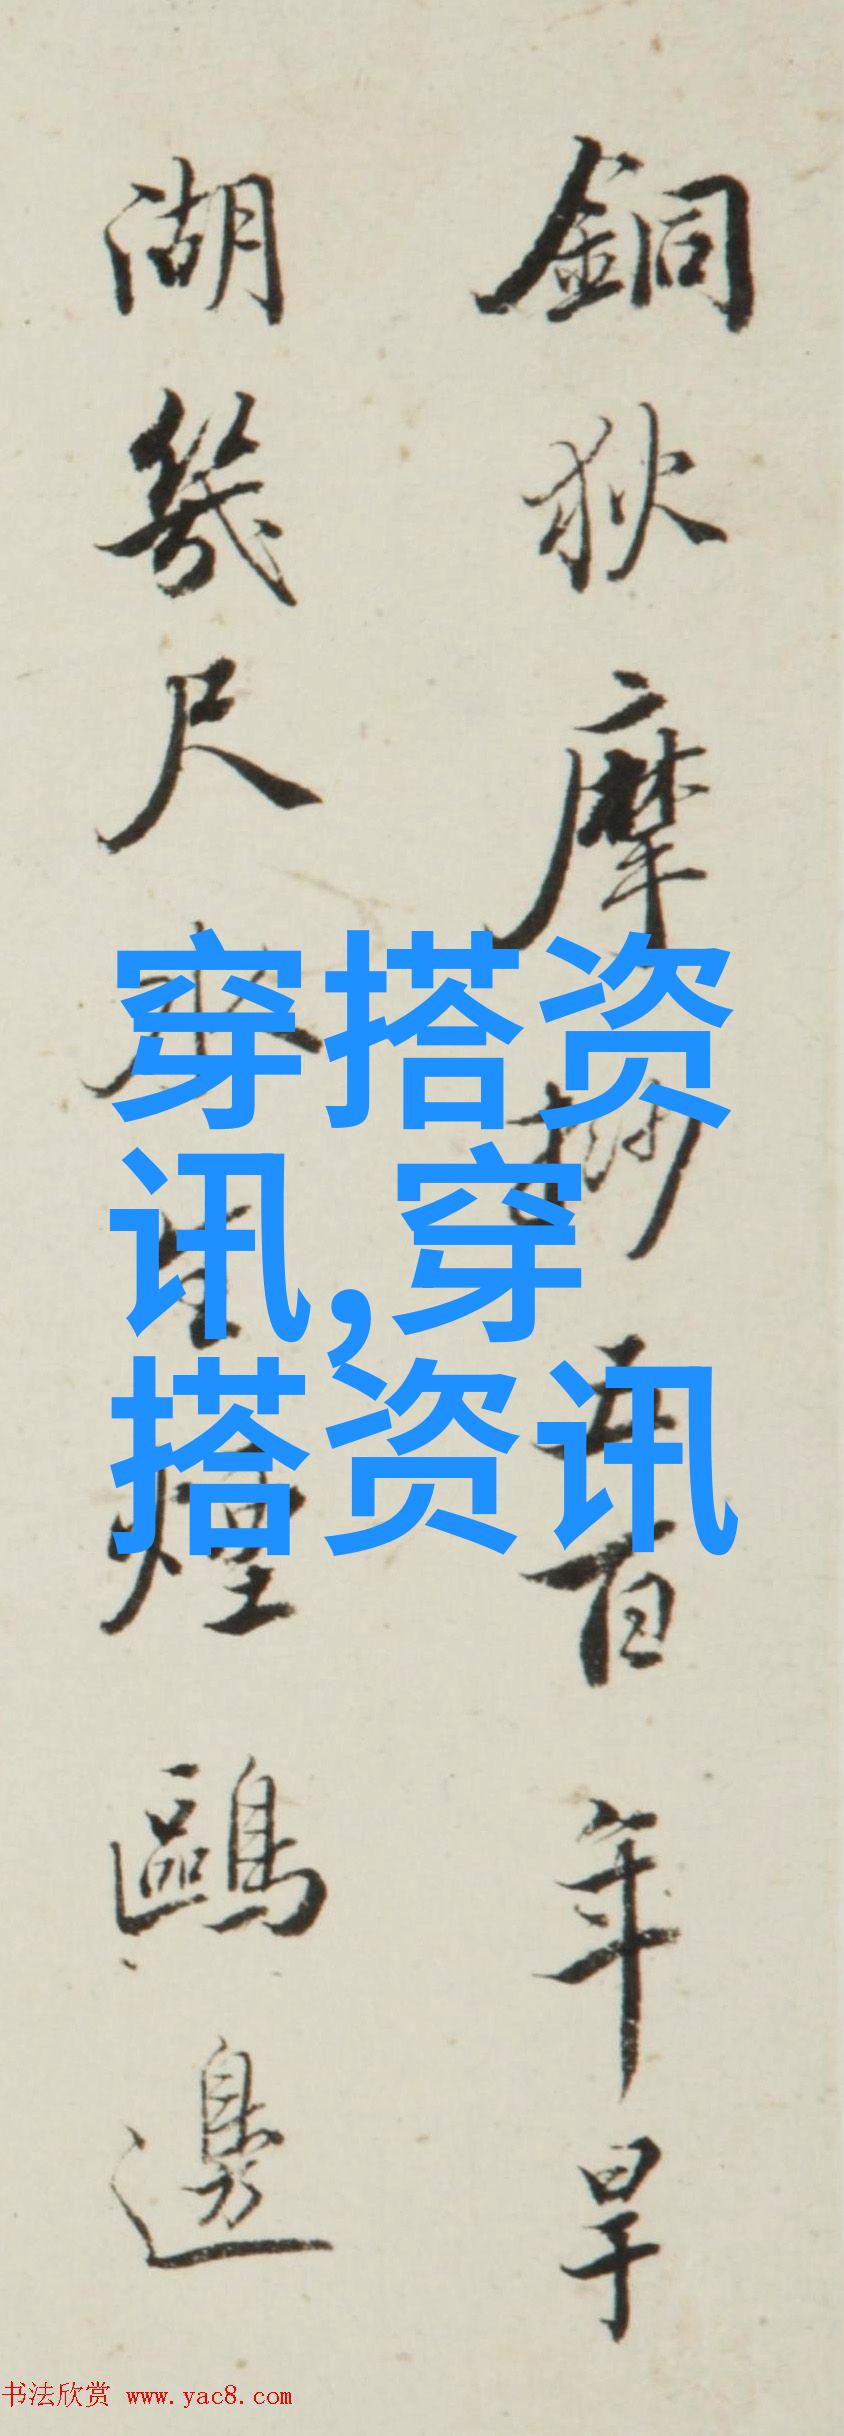 銅狄摩挱五百年旱
湖幾尺水生煙鷗邊
穿搭资
讯,穿
搭资讯
书法欣赏 www.yac8.com